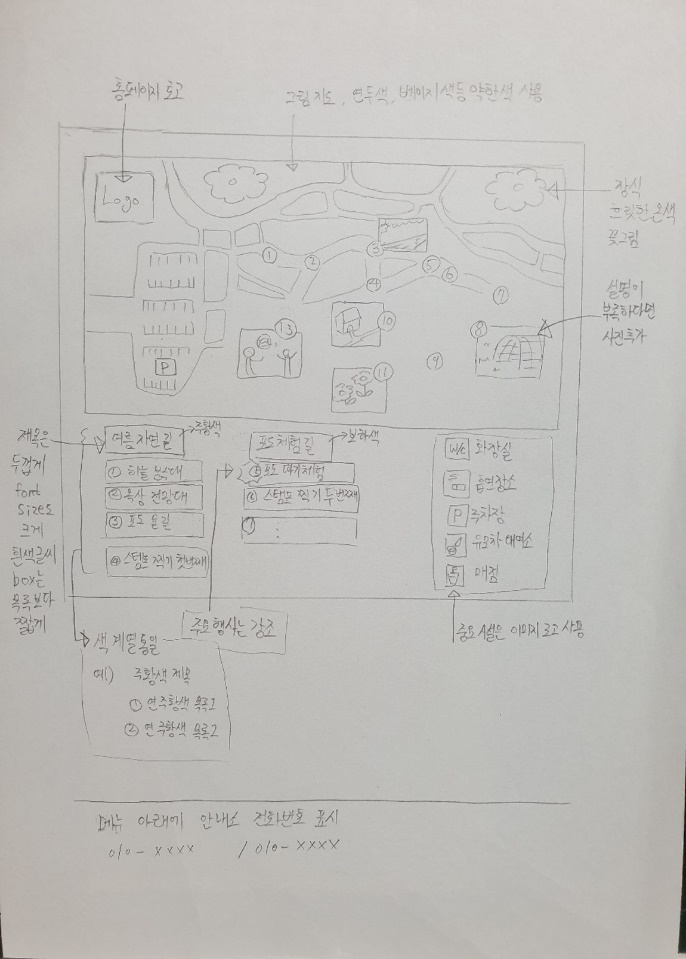 홈페이지 로고
그림 지도, 연두색, 베이지 색등 약한색 사용
Logo
장식
흐릿한 은색
꽃그림
설명이
부족하다면
사진추가
①
②
③
④
⑤
⑥
⑦
⑧
⑨
⑩
⑪
13
P
제목은
두껍게
font
size도
크게
흰색글씨
box는
목록보다
짧게
여름 자연길
주황색
① 하늘
② 옥상 전망대
③ 포도 올길
④ 스탬프 찍기 첫번째
포도체험길
보라색
⑤ 포도 따기체험
⑥ 스탬프 찍기 두번째
⑦ :
W/C 화장실
흡연장소
P 주차장
유모차 대여소
매점
중요시설은 이미지 로고 사용
주요 행사는 강조
색 계열 통일
예) 주황색 제목
① 연주황색 목록1
② 연주황색 목록2
메뉴 아래에 안내소 전화번호 표시
010-xxxx / 010-xxxx